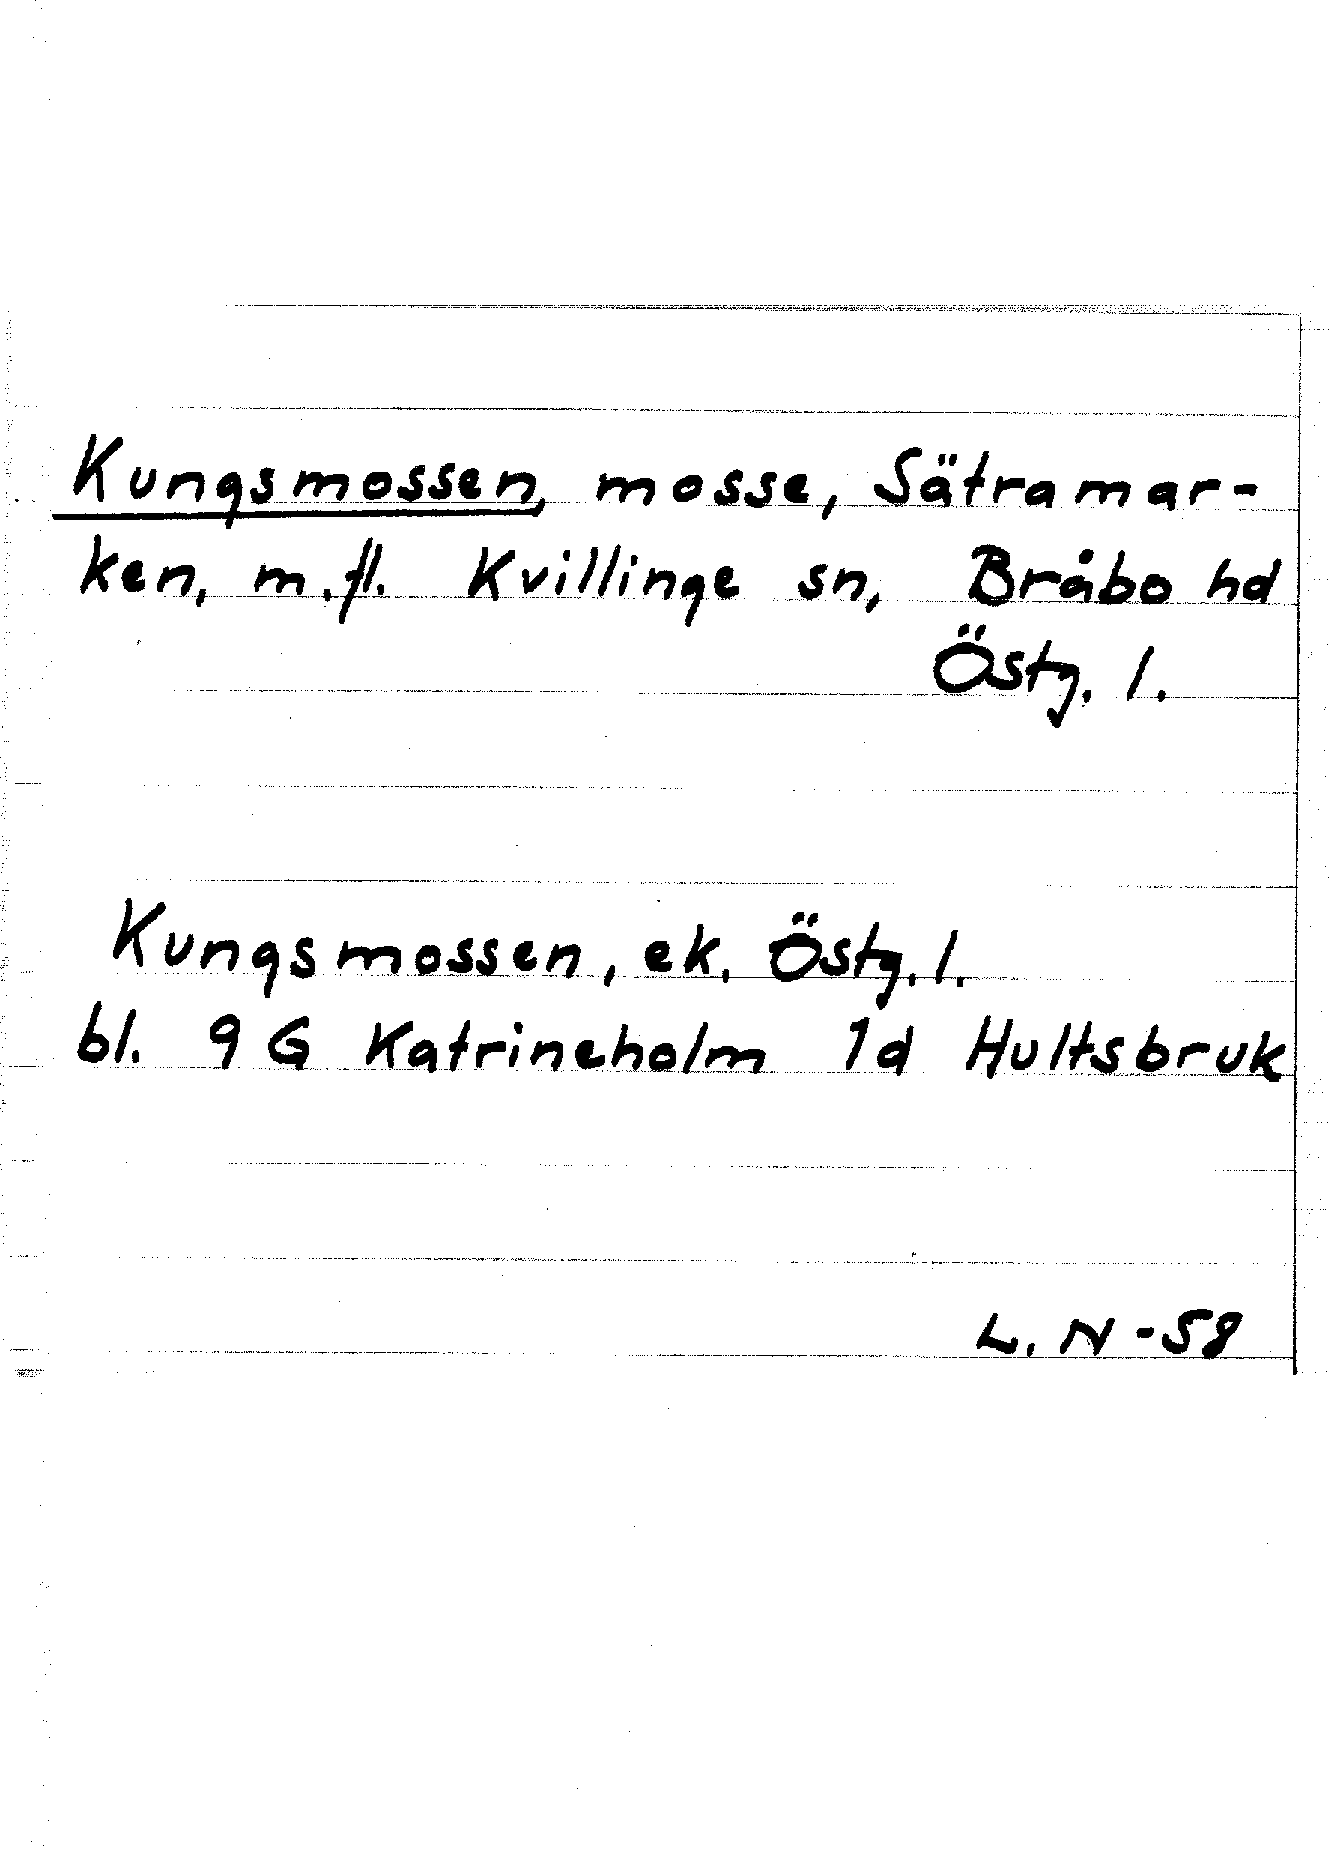 Kungsmossen, mosse, Sätramar-
ken, m.fl. Kvillinge sn, Bråbo hd
Östg. l.
Kungsmossen, ek. Östg. l.
bl. 9 G Katrineholm 1d Hultsbruk
L. N -58